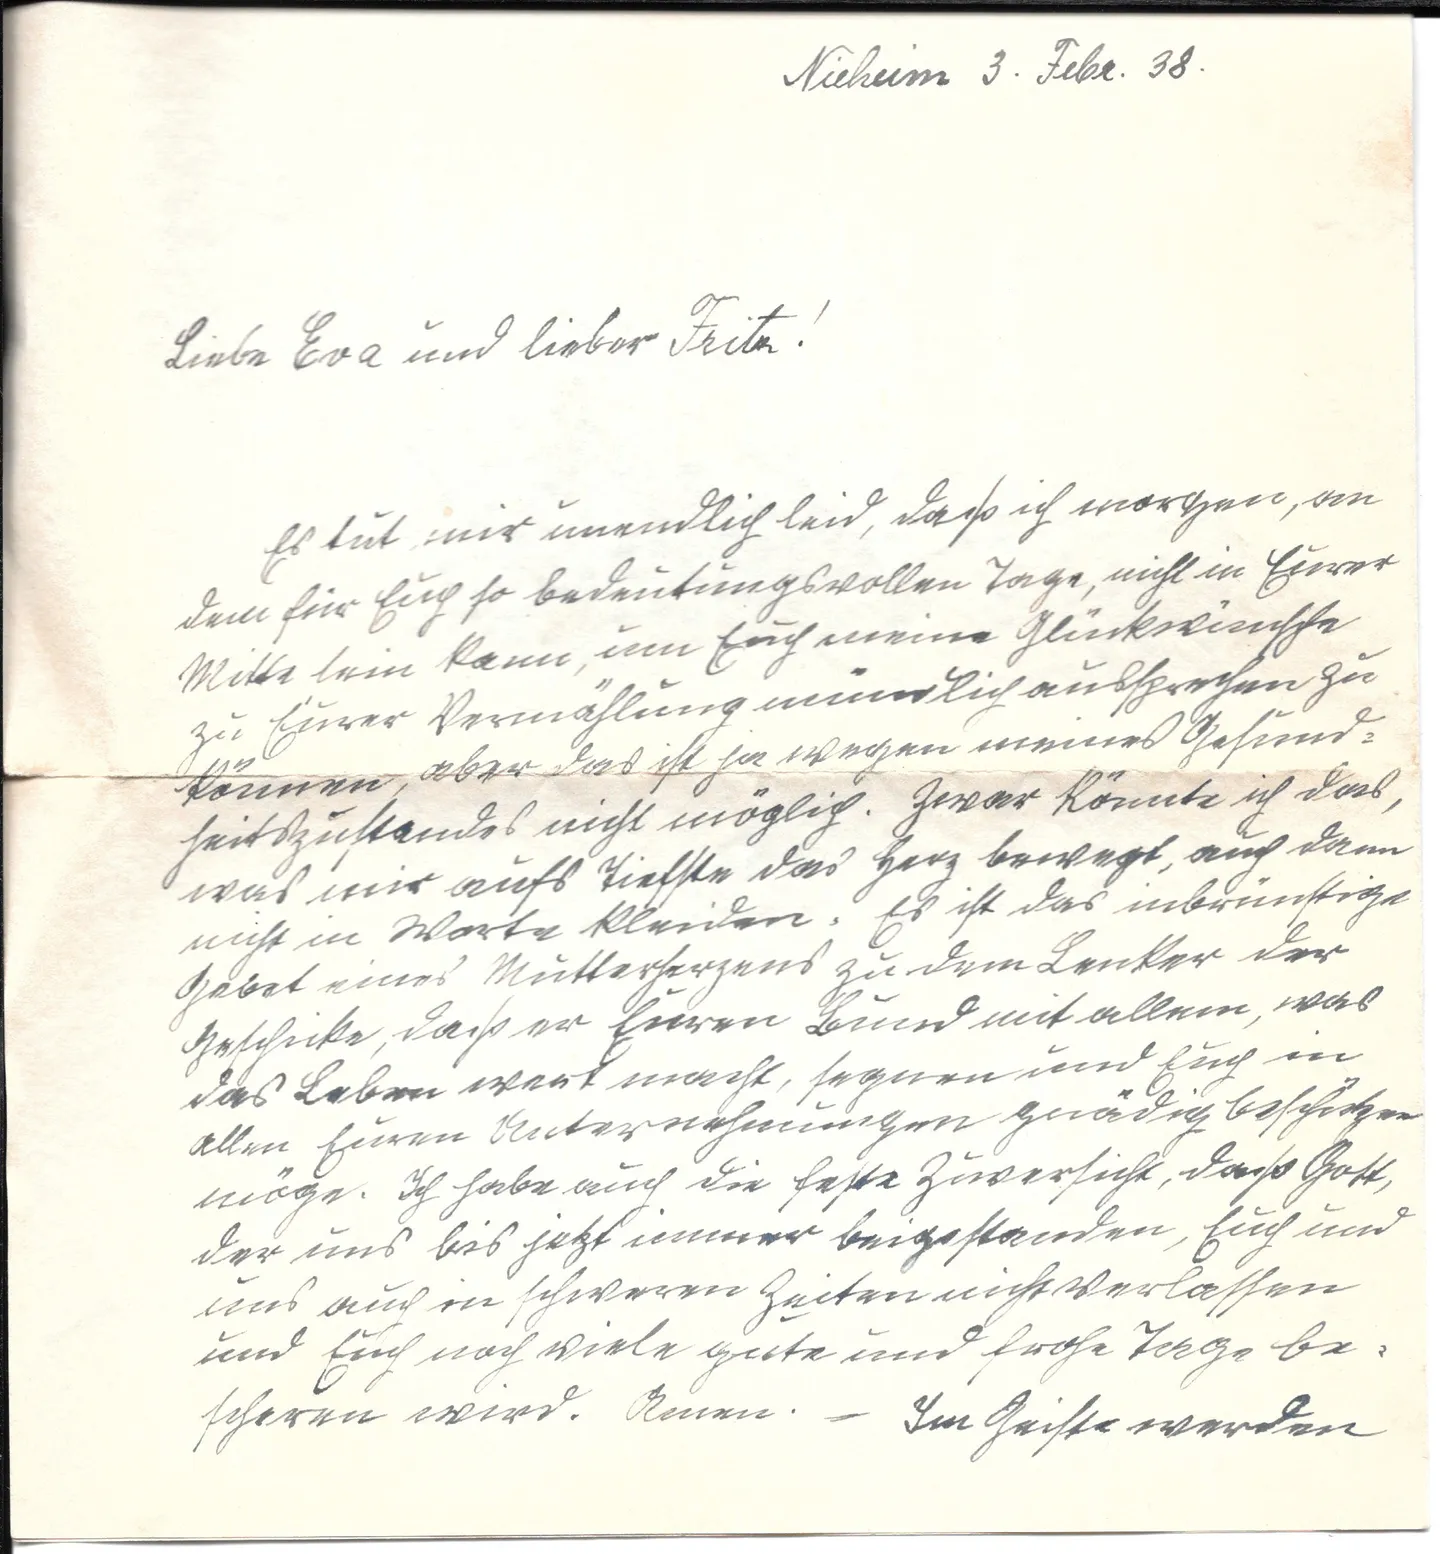 Nieheim 3. Febr. 38.
Liebe Eva und lieber Fritz!
Es tut mir unendlich leid, daß ich morgen, an
dem für Euch so bedeutungsvollen Tage, nicht in Eurer
Mitte sein kann, um Euch meine Glückwünsche
zu Eurer Vermählung mündlich aussprechen zu
können, aber das ist ja wegen meines Gesund-
heitszustandes nicht möglich. Zwar könnte ich das,
was mir aufs Tiefste das Herz bewegt, auch dann
nicht in Worte kleiden. Es ist das inbrünstige
Gebet eines Mutterherzens zu dem Lenker der
Geschicke, daß er Euren Bund mit allem, was
das Leben wert macht, segnen und Euch in
allen Euren Unternehmungen gnädig beschützen
möge. Ich habe auch die feste Zuversicht, daß Gott,
der uns bis jetzt immer beigestanden, Euch und
uns auch in schweren Zeiten nicht verlassen
und Euch noch viele gute und frohe Tage be-
scheren wird. Amen. – Im Geiste werden